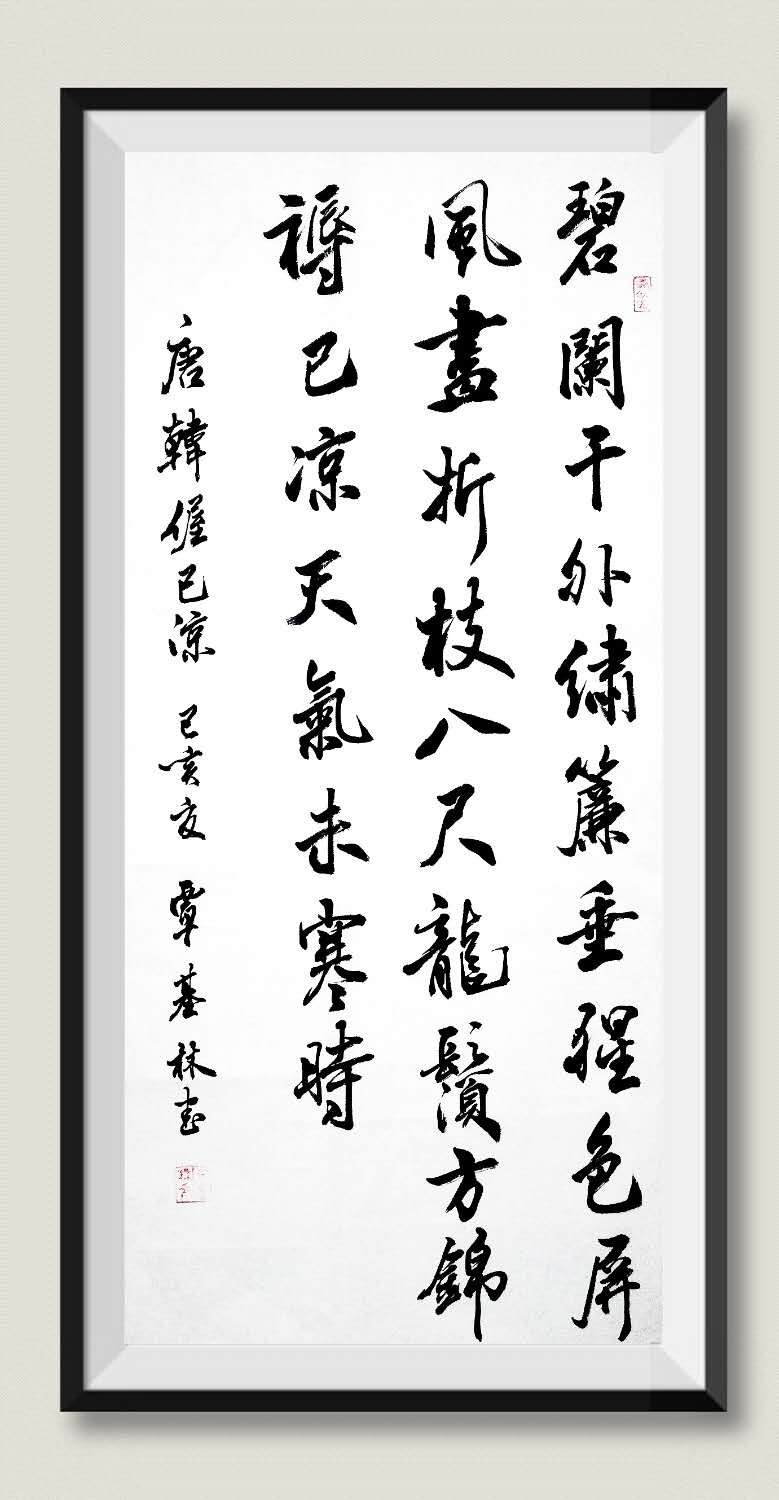 碧闌干外繡簾垂猩色屏
風畫折枝八尺龍鬚方錦
褥已凉天氣未寒時
唐韓偓已凉 己亥夏 覃基林書